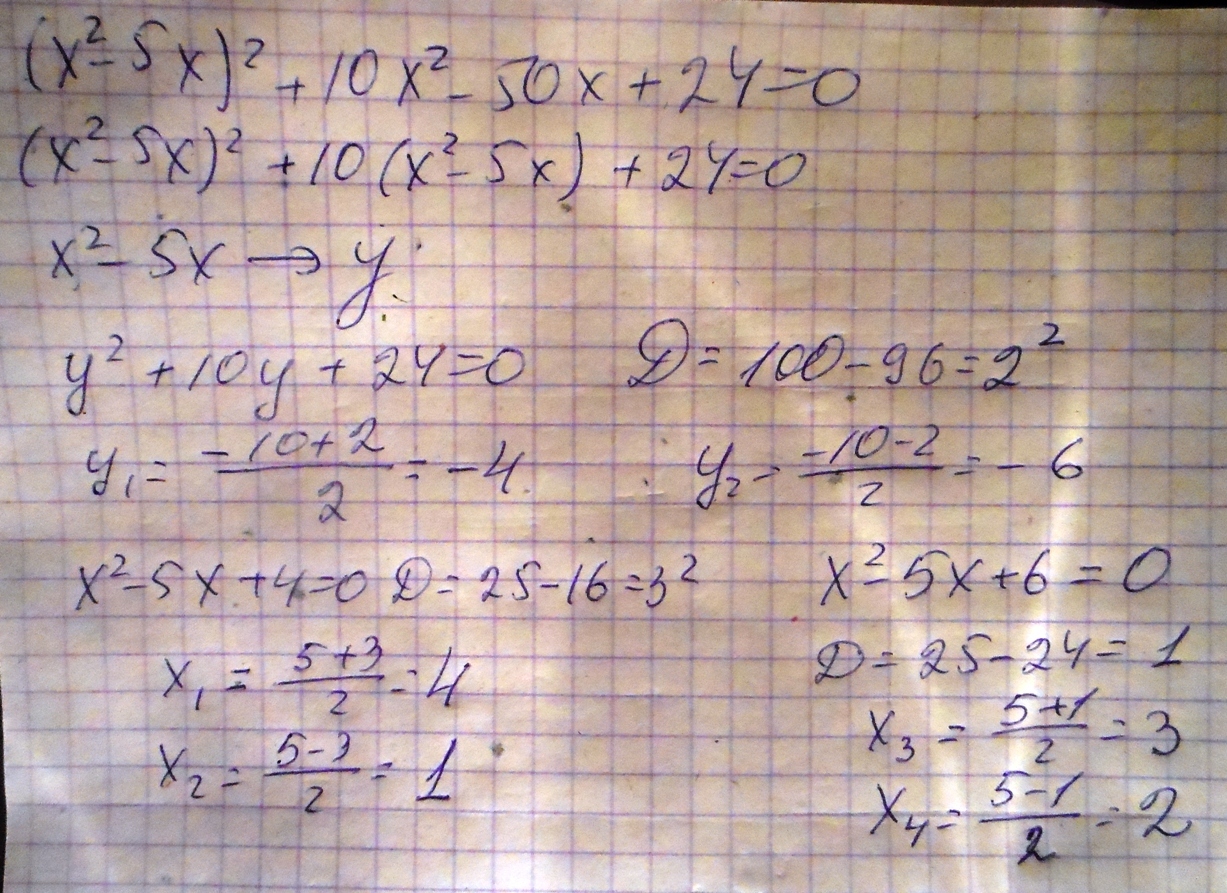 (x²-5x)² + 10x² - 50x + 24=0
(x²-5x)² + 10(x²-5x) + 24=0
x²-5x → y
y² + 10y + 24=0 D = 100-96=2²
y₁ = (-10+2)/2 = -4 y₂ = (-10-2)/2 = -6
x²-5x+4=0 D = 25-16=3² x²-5x+6=0
D = 25-24 = 1
x₁ = (5+3)/2 = 4
x₃ = (5+1)/2 = 3
x₂ = (5-3)/2 = 1
x₄ = (5-1)/2 = 2